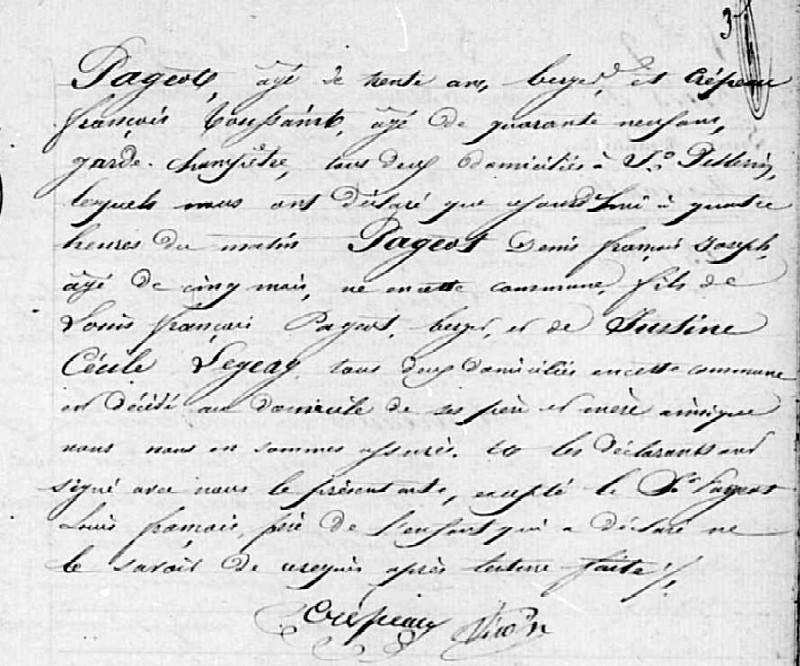 3
Pageot, âgé de trente ans, berger, et Crépeau
françois toussaint, âgé de quarante neuf ans,
garde-champêtre, tous deux domiciliés à St.
lesquels nous ont déclaré que aujourd'hui à quatre
heures du matin Pageot Denis françois Joseph,
âgé de cinq mois, né en cette commune, fils de
Louis françois Pageot, berger, et de Justine
Cécile tous deux domiciliés en cette commune
est décédé au domicile de ses père et mère ainsi que
nous nous en sommes assuré. et les déclarants ont
signé avec nous le présent acte, excepté le Sr. Pageot
Louis françois, père de l'enfant qui a déclaré ne
le savoir de ce requis après lecture faite ./.
Crépeau